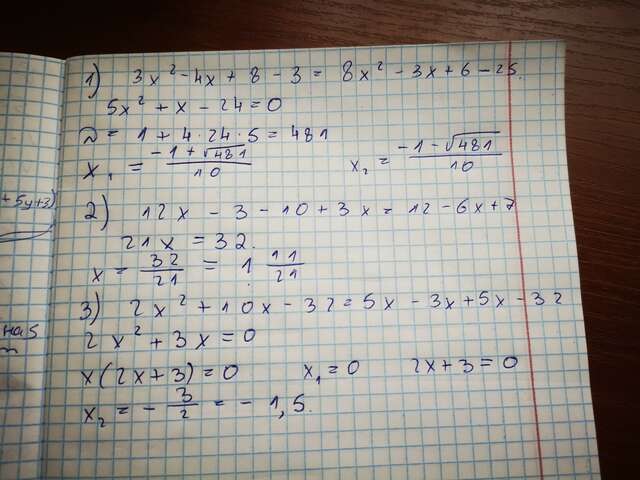 1) 3x² - 4x + 8 - 3 = 8x² - 3x + 6 - 25.
5x² + x - 24 = 0
D = 1 + 4 · 24 · 5 = 481
x₁ = (-1 + √481)/10 x₂ = (-1 - √481)/10
+ 5y+3)
2) 12x - 3 - 10 + 3x = 12 - 6x + 7
21x = 32.
x = 32/21 = 1 11/21
3) 2x² + 10x - 32 = 5x - 3x + 5x - 32
2x² + 3x = 0
x(2x + 3) = 0 x₁ = 0 2x + 3 = 0
x₂ = - 3/2 = - 1,5.